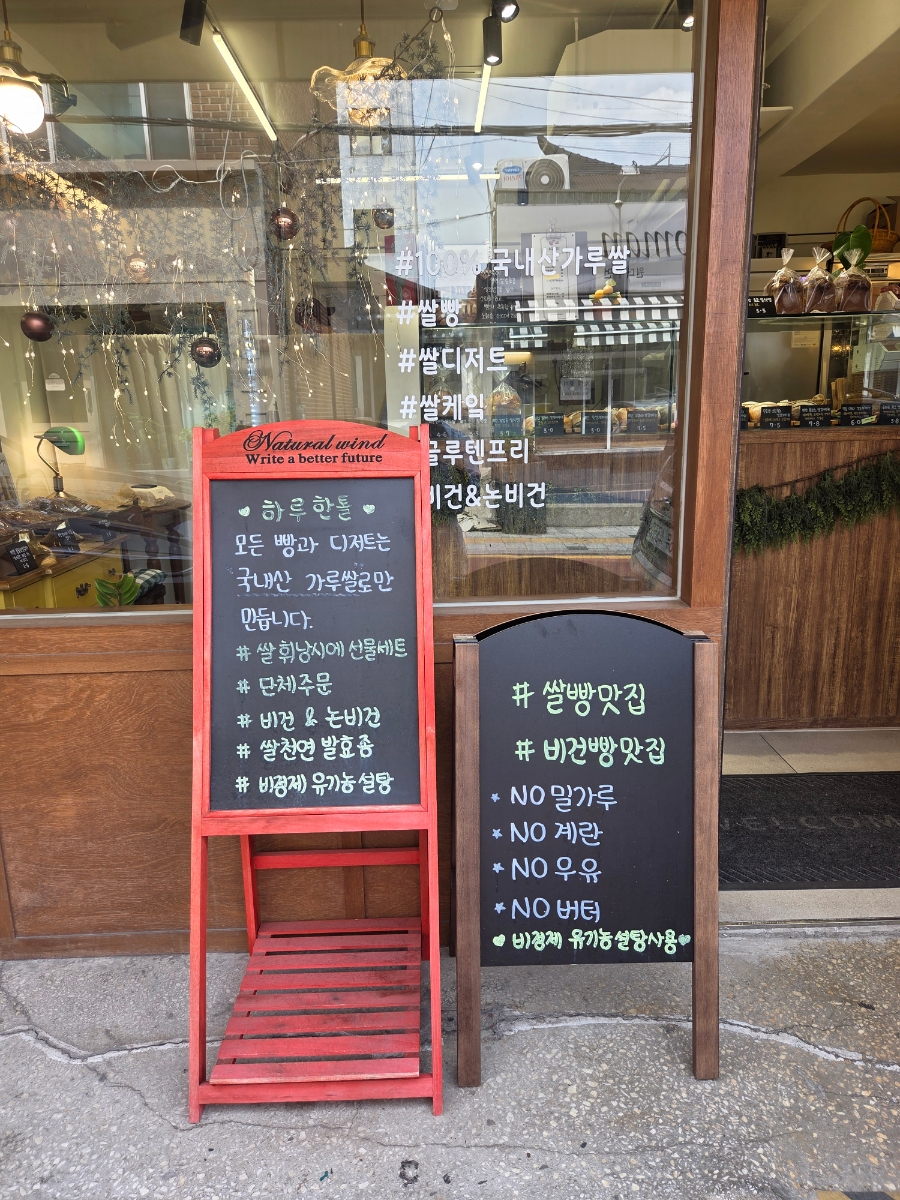 #100% 국내산가루쌀
#쌀빵
#쌀디저트
#쌀케잌
글루텐프리
비건&논비건
Natural wind
Write a better future
하루한톨
모든 빵과 디저트는
국내산 가루쌀로만
만듭니다.
# 쌀휘낭시에 선물세트
# 단체주문
# 비건 & 논비건
# 쌀천연 발효종
# 비정제 유기농설탕
# 쌀빵맛집
# 비건빵맛집
* NO 밀가루
* NO 계란
* NO 우유
* NO 버터
비정제 유기농설탕사용
WELCOM